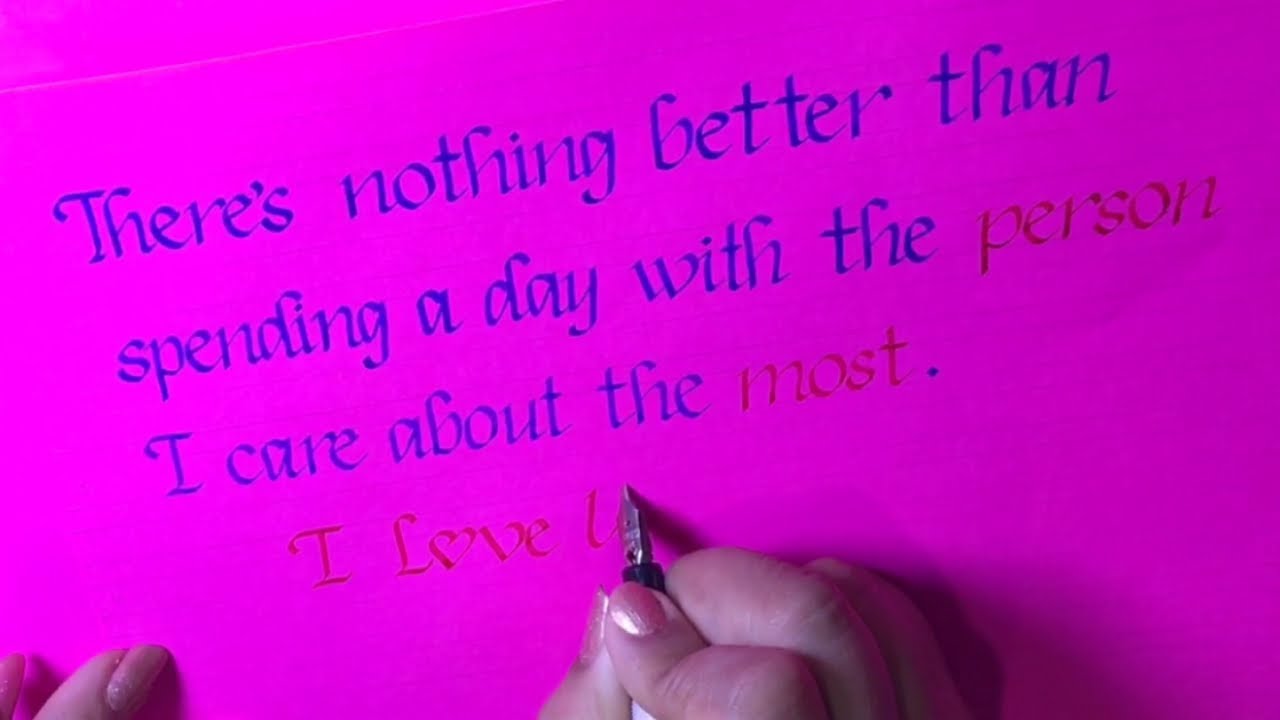 There's nothing better than
spending a day with the person
I care about the most.
I Love U